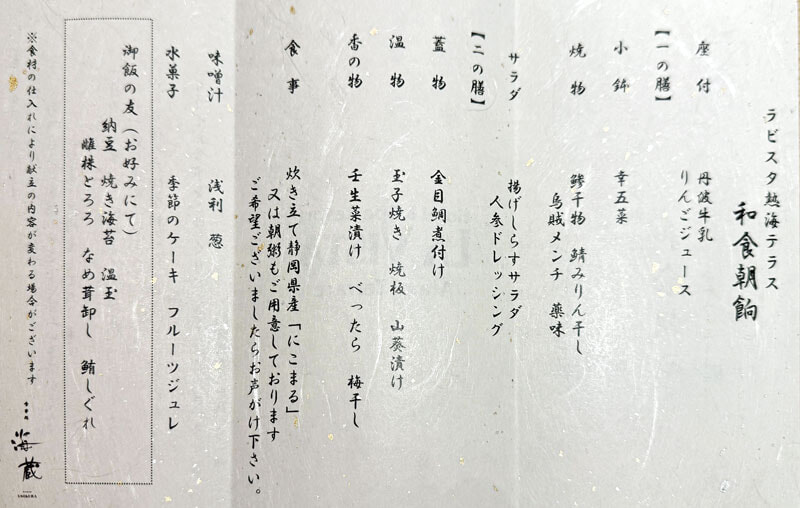 ラビスタ熱海テラス
和食朝餉
座付
丹波牛乳
りんごジュース
【一の膳】
小鉢 幸五菜
焼物 鯵干物 鯖みりん干し
烏賊メンチ 薬味
サラダ 揚げしらすサラダ
人参ドレッシング
【二の膳】
蓋物 金目鯛煮付け
温物 玉子焼き 焼板 山葵漬け
香の物 壬生菜漬け べったら 梅干し
食事 炊き立て静岡県産「にこまる」
又は朝粥もご用意しております
ご希望ございましたらお声がけ下さい。
味噌汁 浅利 葱
水菓子 季節のケーキ フルーツジュレ
御飯の友(お好みにて)
納豆 焼き海苔 温玉
雌株とろろ なめ茸卸し 鮪しぐれ
※食材の仕入れにより献立の内容が変わる場合がございます
海蔵